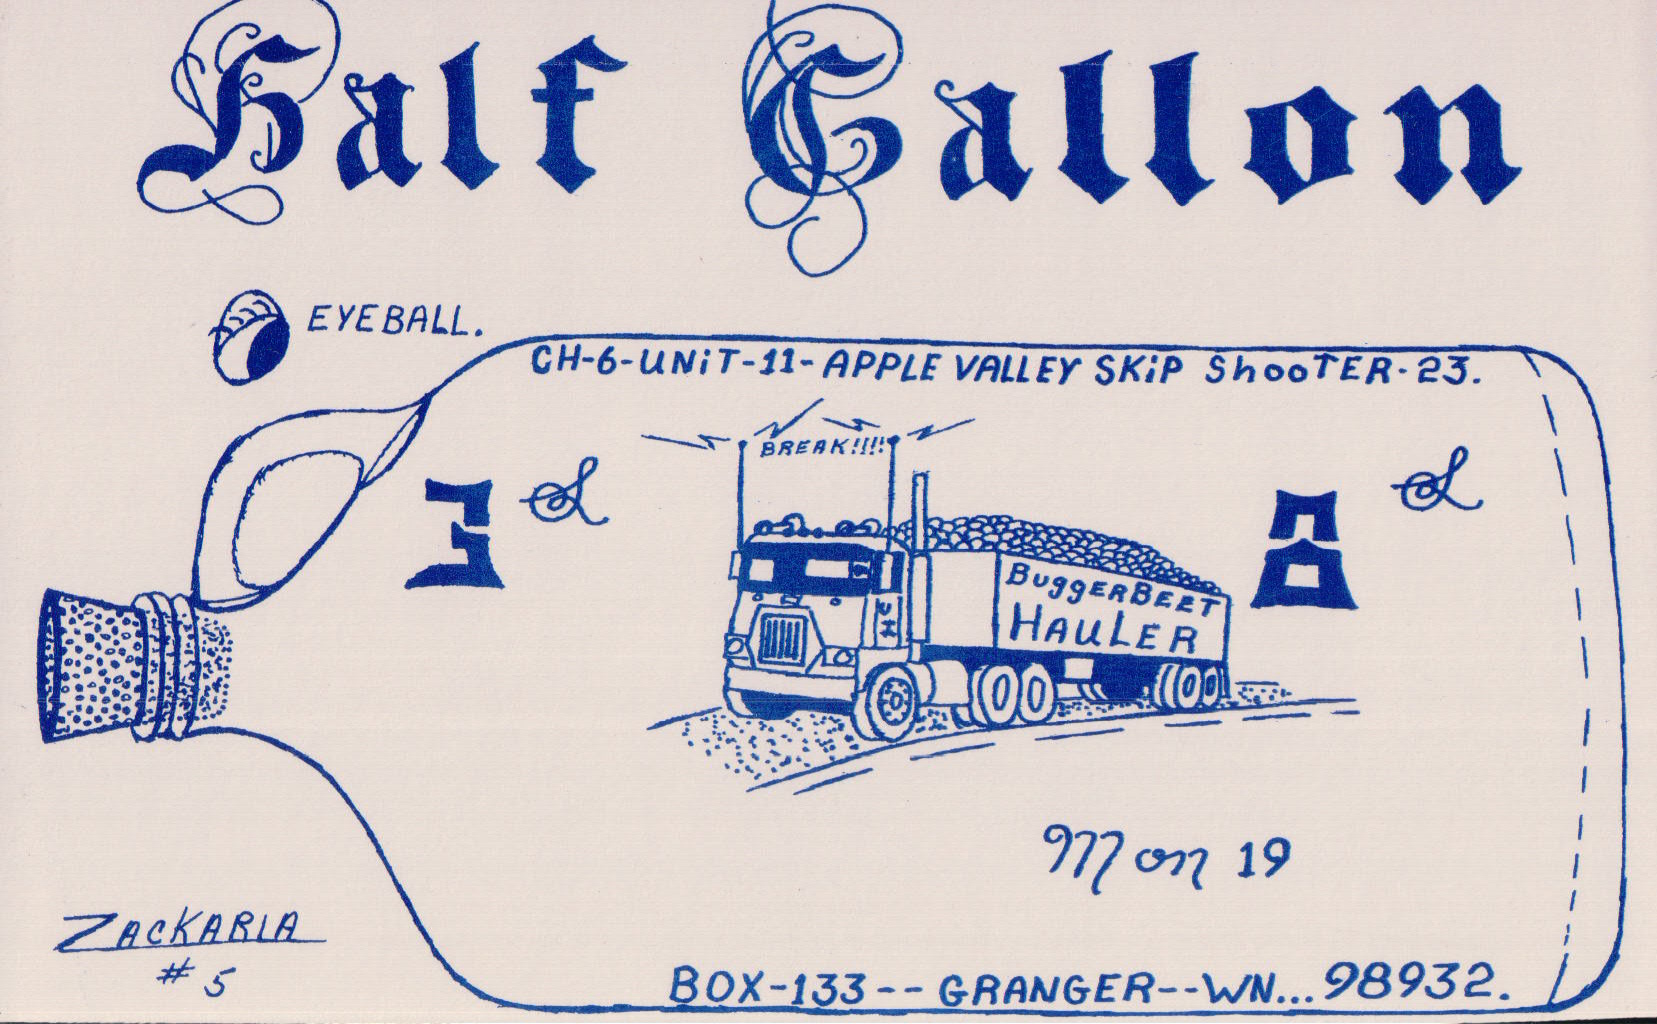 Half Gallon
EYEBALL.
CH-6-UNiT-11-APPLE VALLEY SKiP ShooTER-23.
BREAK!!!!
3 &
8 &
BuggERBEET
HAULER
Mon 19
ZACKARIA
# 5
BOX-133--GRANGER--WN...98932.